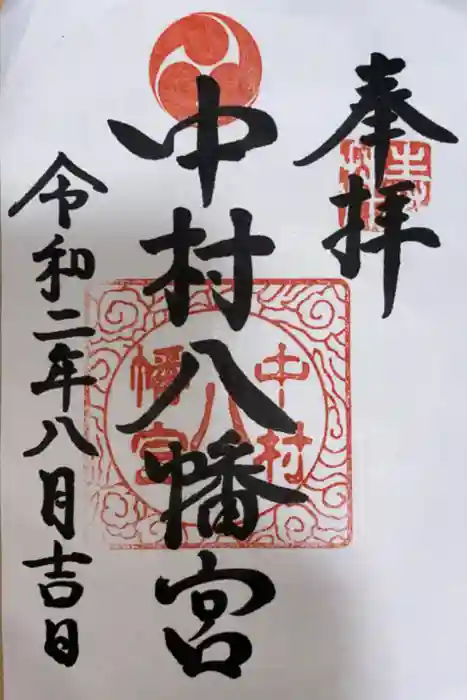 奉拝
中村八幡宮
中村
八
幡宮
令和二年八月吉日